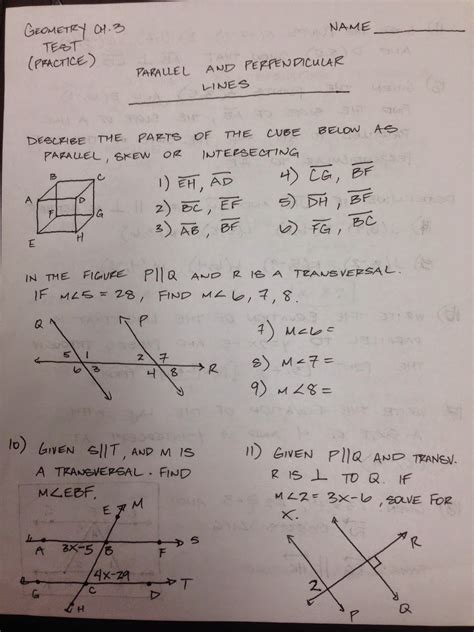 GEOMETRY CH.3 NAME
TEST
(PRACTICE)
PARALLEL AND PERPENDICULAR
LINES
DESCRIBE THE PARTS OF THE CUBE BELOW AS
PARALLEL, SKEW OR INTERSECTING
B C
A D
F G
E H
1) EH, AD 4) CG, BF
2) BC, EF 5) DH, BF
3) AB, BF 6) FG, BC
IN THE FIGURE P||Q AND R IS A TRANSVERSAL.
IF M∠5 = 28, FIND M∠ 6, 7, 8.
Q P
5 1 2 7
6 3 4 8 R
7) M∠6=
8) M∠7=
9) M∠8=
10) GIVEN S||T, AND M IS
A TRANSVERSAL. FIND
M∠EBF.
E M
A 3X-5 B F S
4X-29
G C D T
H
11) GIVEN P||Q AND TRANSV.
R IS ⊥ TO Q. IF
M∠2= 3X-6, SOLVE FOR
X.
R
2
P Q